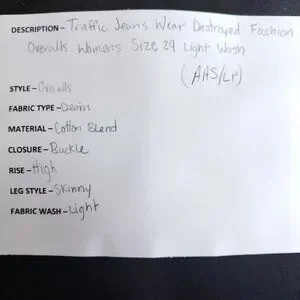 DESCRIPTION – Traffic Jeans Wear Destroyed Fashion
Overalls Womens Size 29 Light Wash
(AHS/LP)
STYLE – Overalls
FABRIC TYPE – Denim
MATERIAL – Cotton Blend
CLOSURE – Buckle
RISE – High
LEG STYLE – Skinny
FABRIC WASH – Light